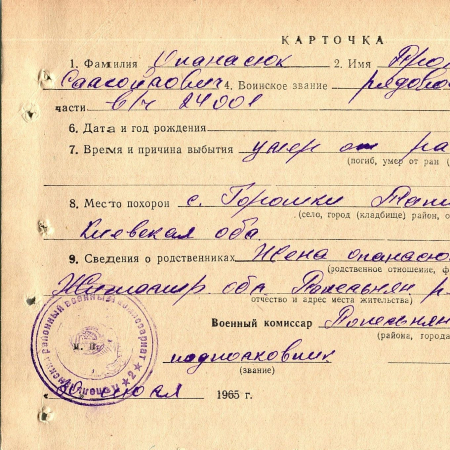 КАРТОЧКА
1. Фамилия Опанасюк 2. Имя
4. Воинское звание рядово
части в/ч 24001
6. Дата и год рождения
7. Время и причина выбытия умер от ра
(погиб, умер от ран (
8. Место похорон с. Горошки
(село, город (кладбище) район, о
Киевская обл
9. Сведения о родственниках Жена Опанасю
(родственное отношение, ф
Житомир обл
отчество и адрес места жительства)
Военный комиссар
(района, города
подполковник
(звание)
1965 г.